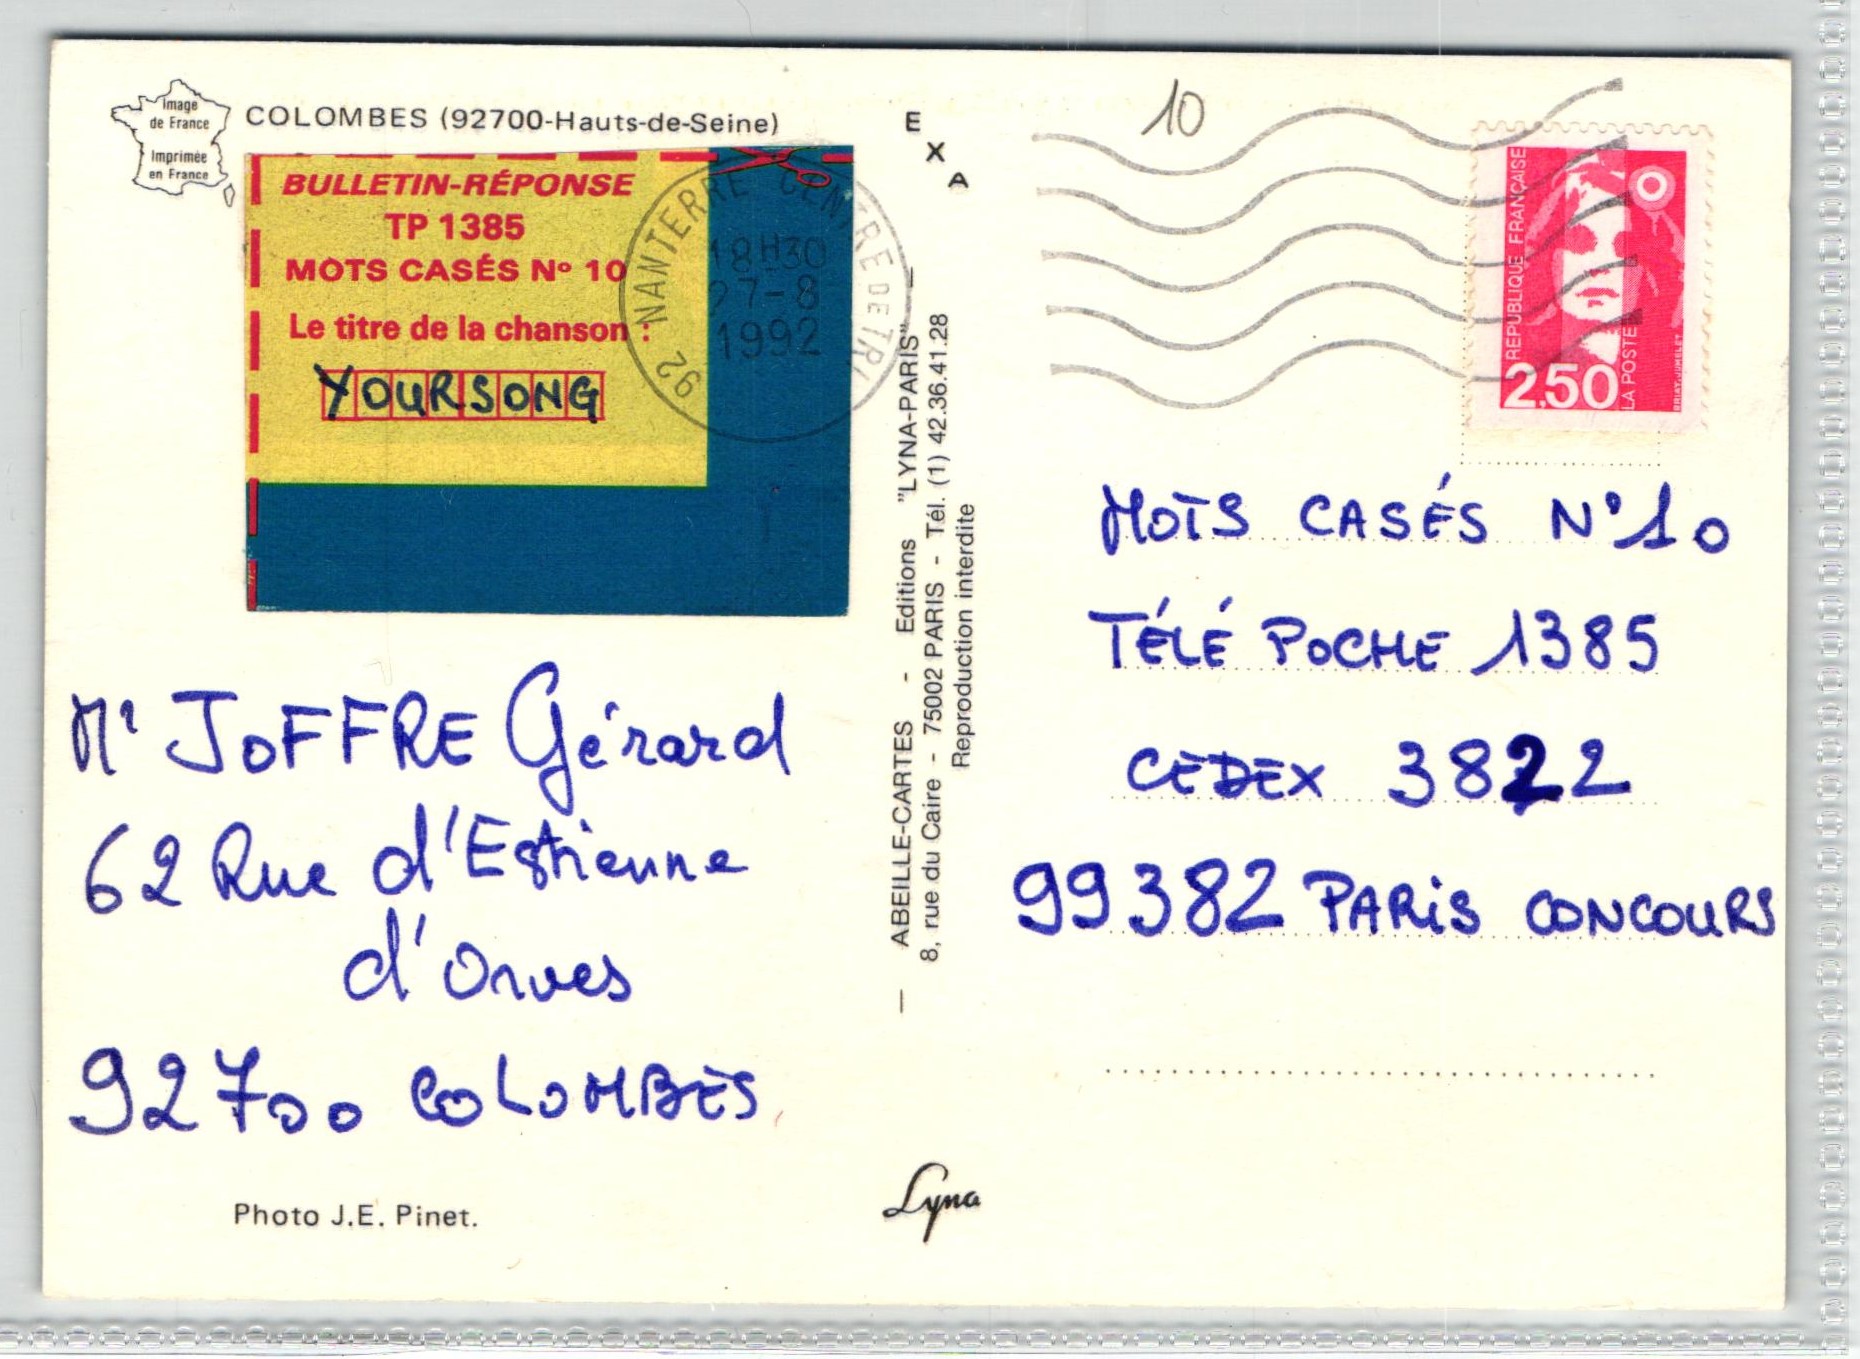 Image
de France
Imprimée
en France
COLOMBES (92700-Hauts-de-Seine)
BULLETIN-RÉPONSE
TP 1385
MOTS CASÉS Nº 10
Le titre de la chanson :
YOURSONG
92 NANTERRE CENTRE DE TRI
18H30
27-8
1992
Mr JOFFRE Gérard
62 Rue d'Estienne
d'Orves
92700 COLOMBES
Photo J.E. Pinet.
E
X
A
— ABEILLE-CARTES - Editions "LYNA-PARIS" —
8, rue du Caire - 75002 PARIS - Tél. (1) 42.36.41.28
Reproduction interdite
Lyna
10
REPUBLIQUE FRANÇAISE
2,50
LA POSTE
BRIAT.JUMELET
MOTS CASÉS N°10
TÉLÉ POCHE 1385
CEDEX 3822
99382 PARIS CONCOURS